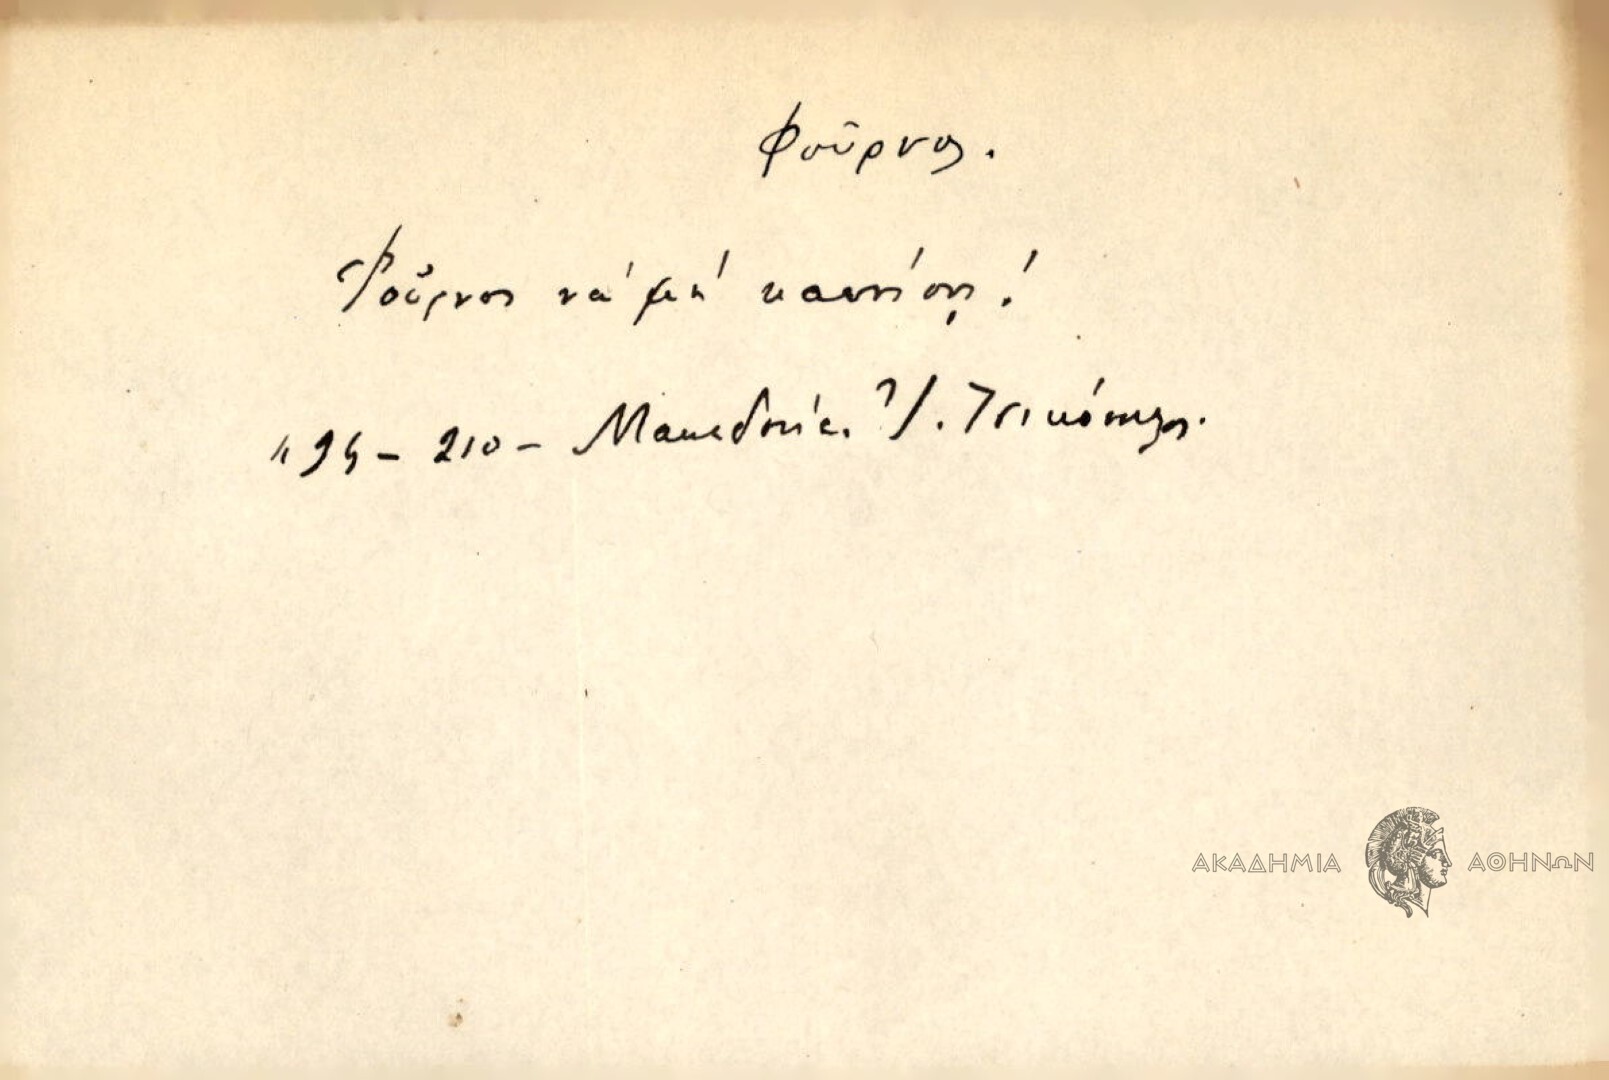 Φοῦρνος.
Φοῦρνος νά μή καπνίσῃ!
1194 – 210 – Μακεδονία. Ἰ. Τσικόπουλος.
ΑΚΑΔΗΜΙΑ ΑΘΗΝΩΝ